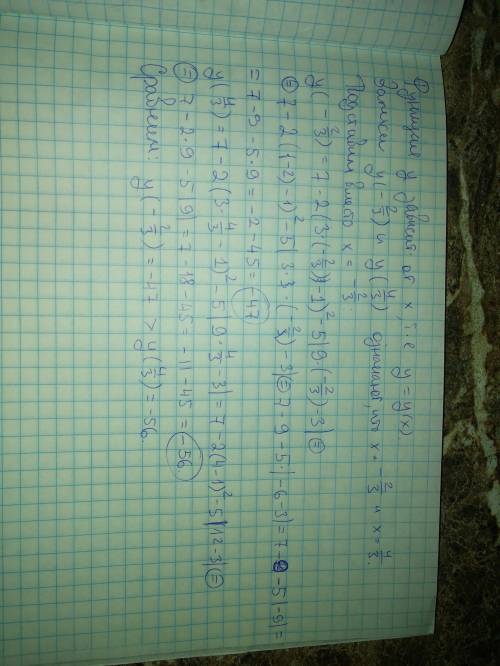 Функция y зависит от x, т.е. y = y(x)
Записи y(-2/3) и y(4/3) означают, что x = -2/3 и x = 4/3.
Подставим вместо x = -2/3
y(-2/3) = 7 - 2(3·(-2/3) - 1)² - 5|9·(-2/3) - 3| =
= 7 - 2((-2) - 1)² - 5|3·3·(-2/3) - 3| = 7 - 9 - 5·|-6-3| = 7 - 9 - 5|-9| =
= 7 - 9 - 5·9 = -2 - 45 = -47
y(4/3) = 7 - 2(3·4/3 - 1)² - 5|9·4/3 - 3| = 7 - 2(4-1)² - 5|12-3| =
= 7 - 2·9 - 5|9| = 7 - 18 - 45 = -11 - 45 = -56.
Сравним: y(-2/3) = -47 > y(4/3) = -56.